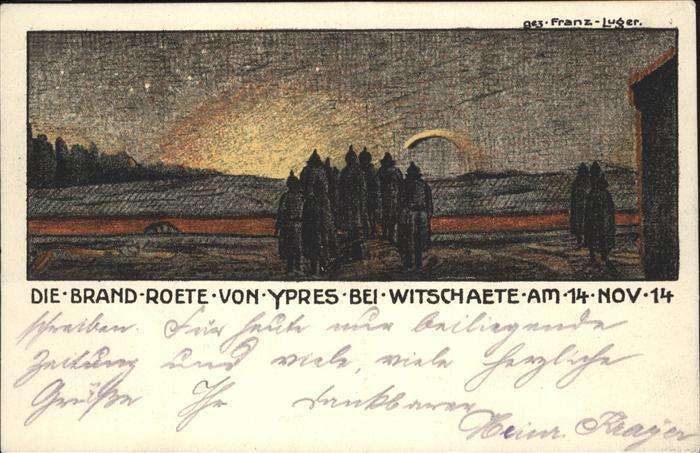 gez. Franz-Luger.
DIE·BRAND-ROETE·VON·YPRES·BEI·WITSCHAETE·AM·14·NOV·14
schreiben. Für heute nur beiliegende
Zeitung und viele, viele herzliche
Grüße Ihr dankbarer
Heinr. Krayer